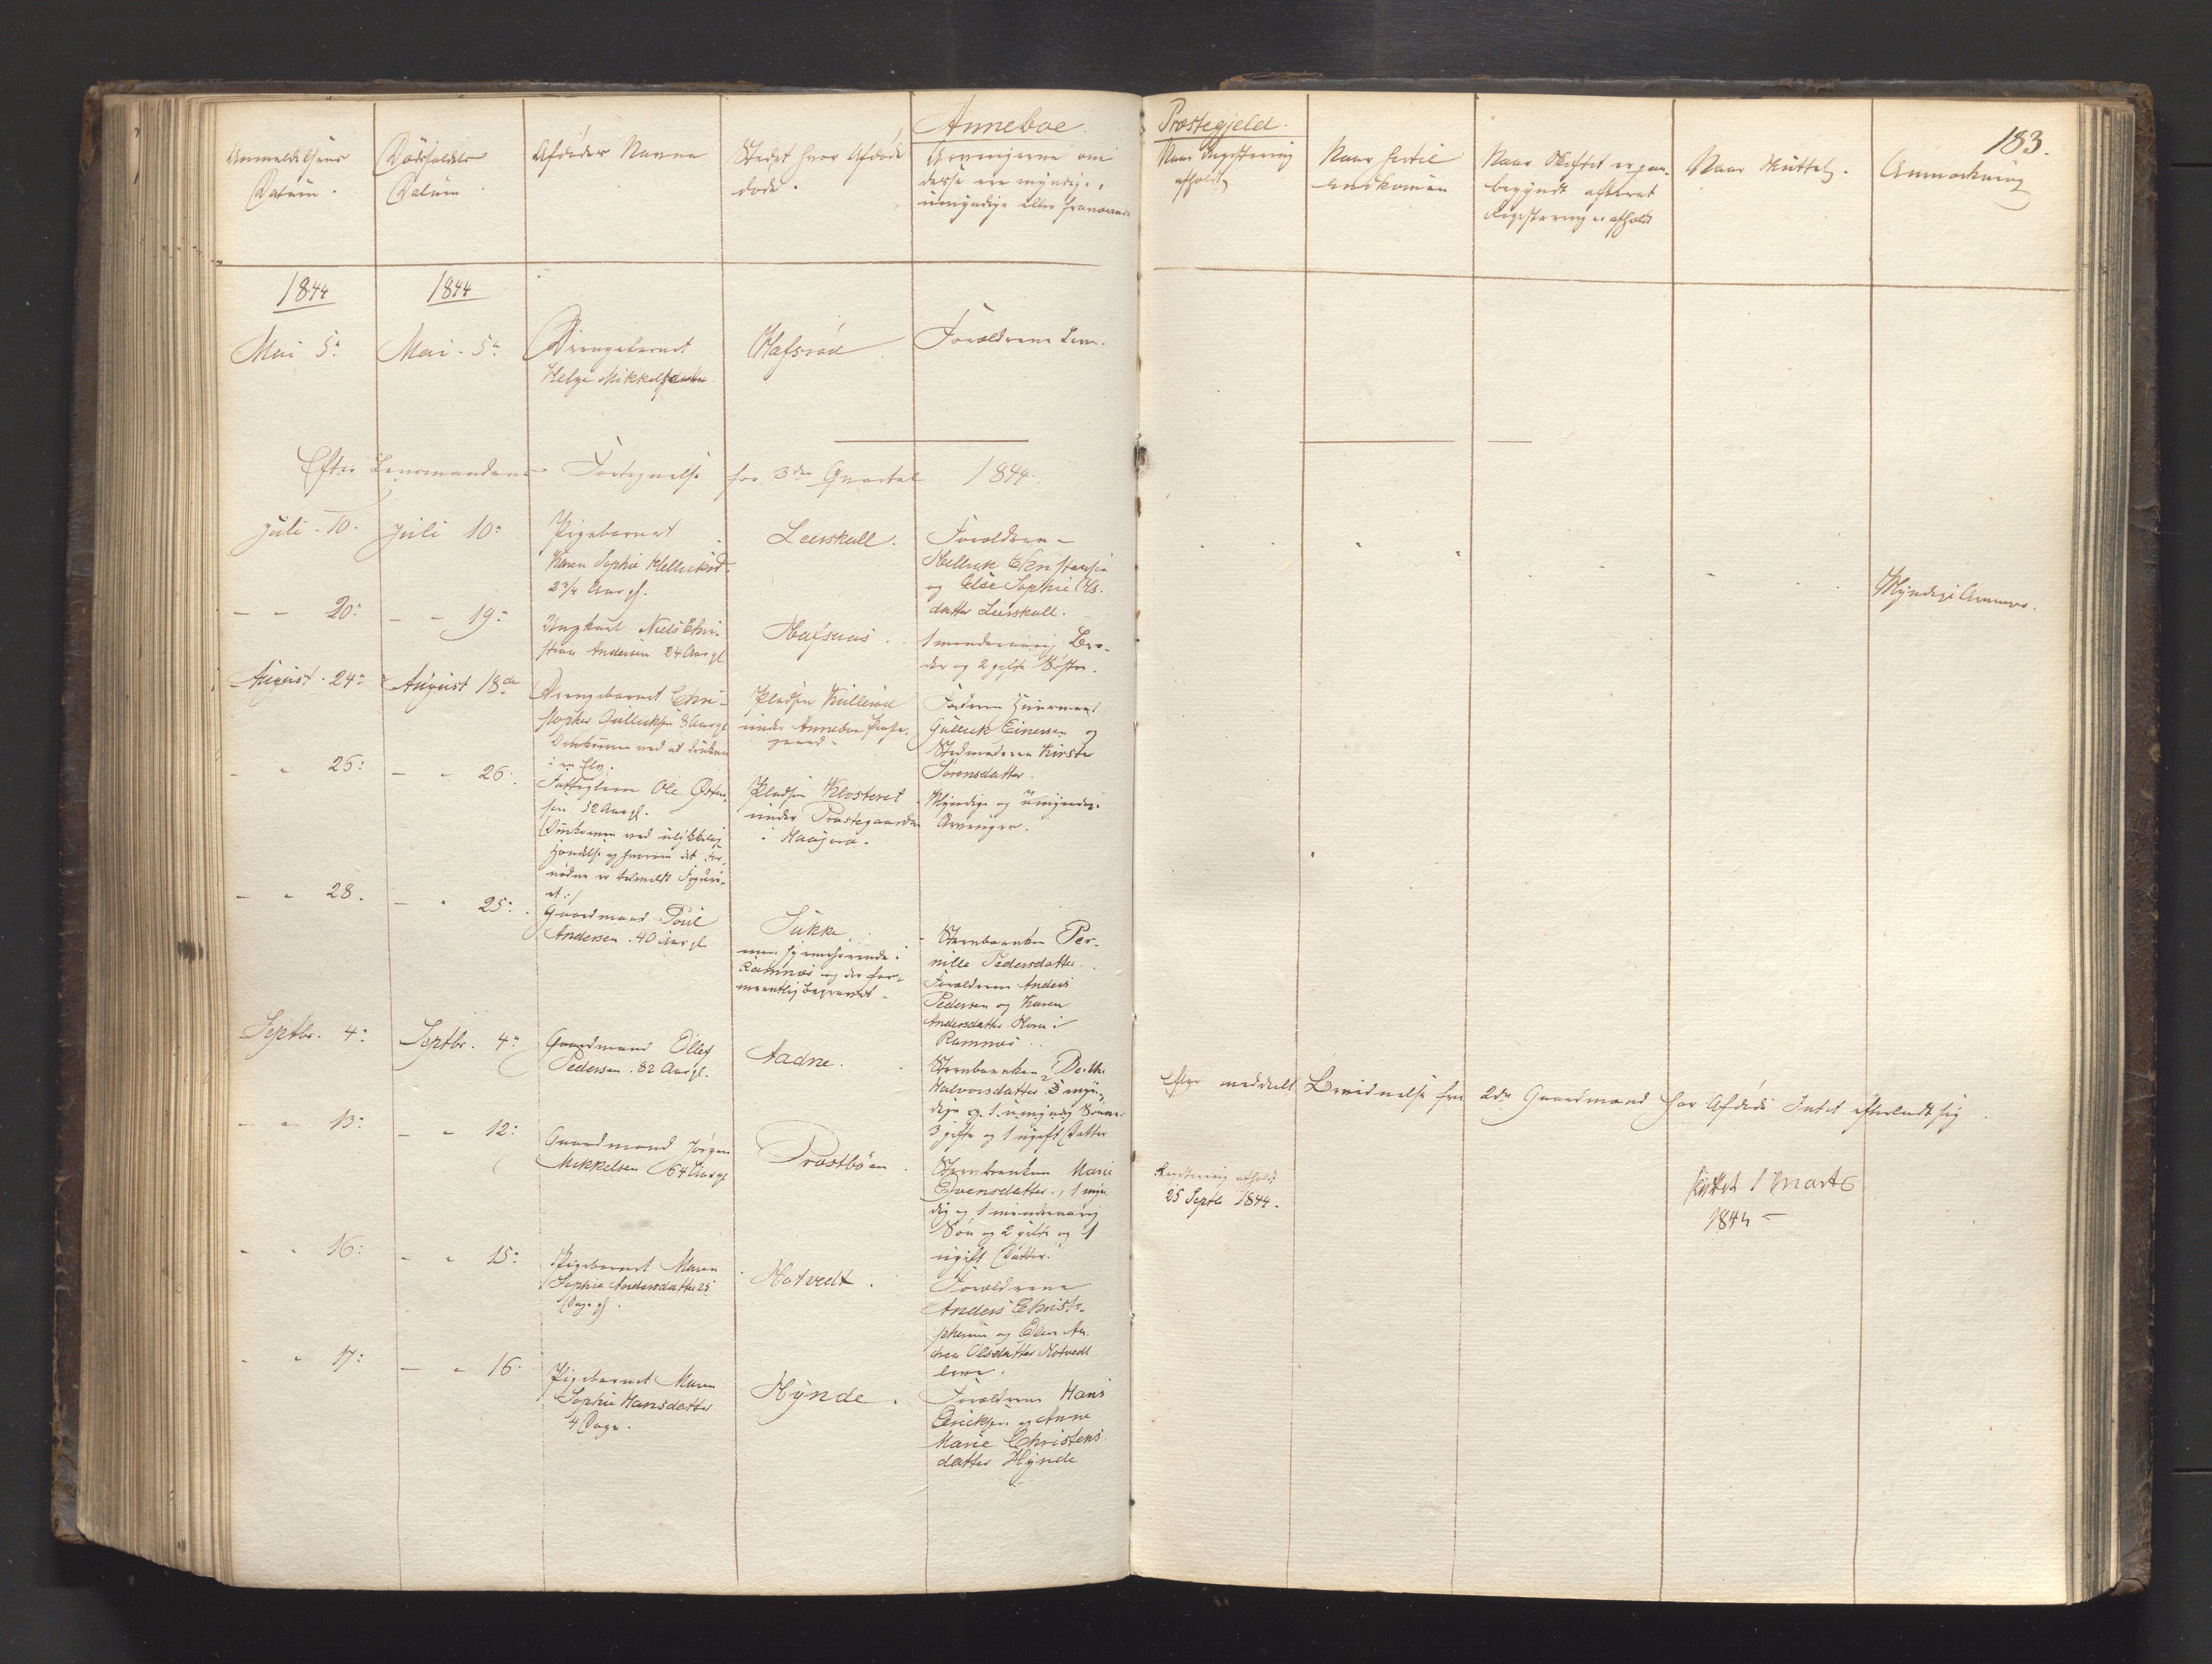 Anneboe
Præstegjeld.
183.
Anmeldelsens
Datum.
Dødsfaldets
Datum
Afdødes Navne
Stedet hvor Afdøde
døde.
Arvingerne om
disse ere myndige,
umyndige eller fraværende
Naar Registrering
afholdt
Naar hertil
ankommen
Naar Skiftet er
begyndt efterat
Registrering er afholdt
Naar sluttet.
Anmærkning
1844
1844
Mai 5te
Mai - 5te
Drengebarnet
Helge Mikkelsen
Hafsrød
Forældrene leve.
Efter Lensmandens Fortegnelse for 3die Qvartal 1844.
Juli - 10.
Juli 10de
Pigebarnet
Karen Sophie Hellicksd.
2 3/4 Aar gl.
Leerskall.
Forældrene
Hellick Christensen
og Else Sophie Ols.
datter Leerskall.
- - 20:
- - 19de
Ungkarl Niels Chri-
stian Andersen 24 Aar gl
1 mindreaarig Bro-
der og 2 gifte Søstre.
Myndige Arvinger.
August. 24de
August 18de
Drengebarnet Chri-
stopher Gulliksen 8 Aar gl
Omkommen ved at drukne
i en Elv.
Pladsen Kullerød
under Anneboe Præste-
gaard.
Faderen Huusmand
Gullick Einersen og
Stedmoderen Kirste
Sørensdatter.
- - 26:
- - 26.
Fattiglem Ole Østen-
sen 52 Aar gl.
(Omkommen ved ulykkelig
Hændelse og hvorom det for-
nødne er tilmeldt Fogderi-
et:/
Pladsen Klosteret
under Præstegaarden
i
Myndige og umyndige
Arvinger.
- - 28.
- - 25:
Gaardmand Poul
Andersen. 40 Aar gl.
Sukke
men hjemmehørende i
Ramnæs og der for-
meentlig begravet.
Stervboenken Per-
nille Pedersdatter.
Forældrene Anders
Pedersen og Karen
Andersdatter Horn i
Ramnæs.
Septbr. 4de
Septbr. 4de
Gaardmand Ellef
Pedersen. 82 Aar gl.
Aadne.
Stervboenken Berthe
Halvorsdatter 3 myn-
dige og 1 umyndig Sønner
3 gifte og 1 ugift Datter
Efter meddelt Bevidnelse fra 2de Gaardmænd har Afdøde Intet efterladt sig
- - 13:
- - 12:
Gaardmand Jørgen
Mikkelsen 64 Aar gl
Præstbøen.
Stervboenken Marie
Evensdatter, 1 myn-
dig og 1 mindreaarig
Søn og 2 gifte og 1
ugift Datter.
Registrering afholdt
25 Septb 1844.
sluttet 1 Marts
1845
- - 16:
- - 15de
Pigebarnet Maren
Sophie Andersdatter 25
Dage gl.
Hotvedt.
Forældrene
Anders Christo-
phersen og Ellen An-
drea Olsdatter Hotvedt
leve.
- - 17:
- - 16.
Pigebarnet Maren
Sophie Hansdatter
4 Dage.
Hynde.
Forældrene Hans
Ericksen og Anne
Marie Christens
datter Hynde